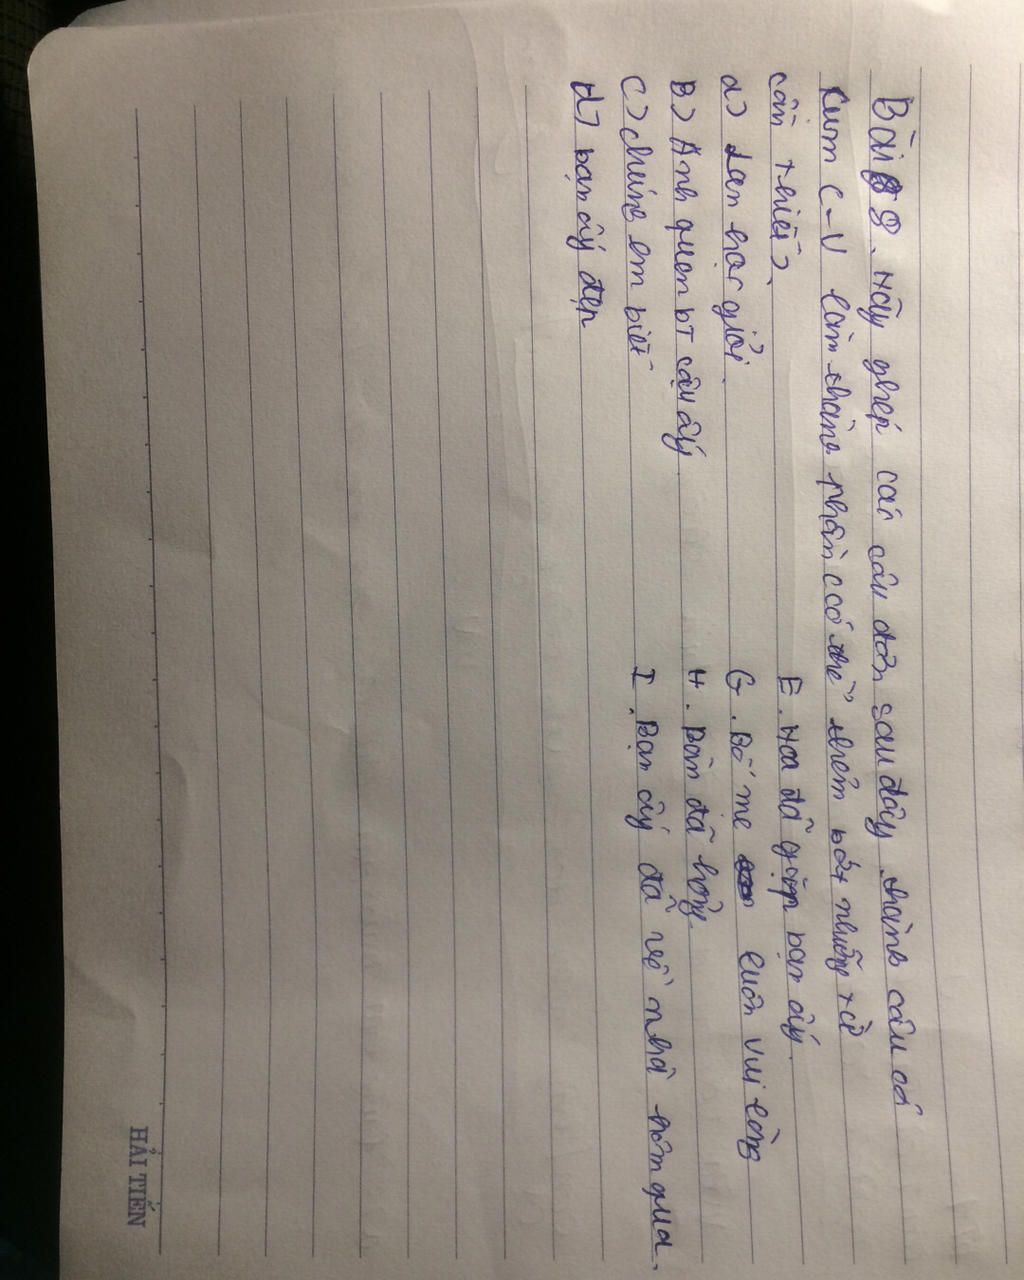 Bài 8. Hãy ghép các câu đơn sau đây thành câu có
cụm C-V làm thành phần (có thể thêm bớt những từ
cần thiết)
a) Lan học giỏi.
B) Anh quen bt cậu ấy
C) chúng em biết
d) bạn ấy đẹp
E. Hoa đã gặp bạn ấy.
G. Bố mẹ luôn vui lòng
H. Bàn đã hỏng.
I. Bạn ấy đã về nhà hôm qua.
HẢI TIẾN